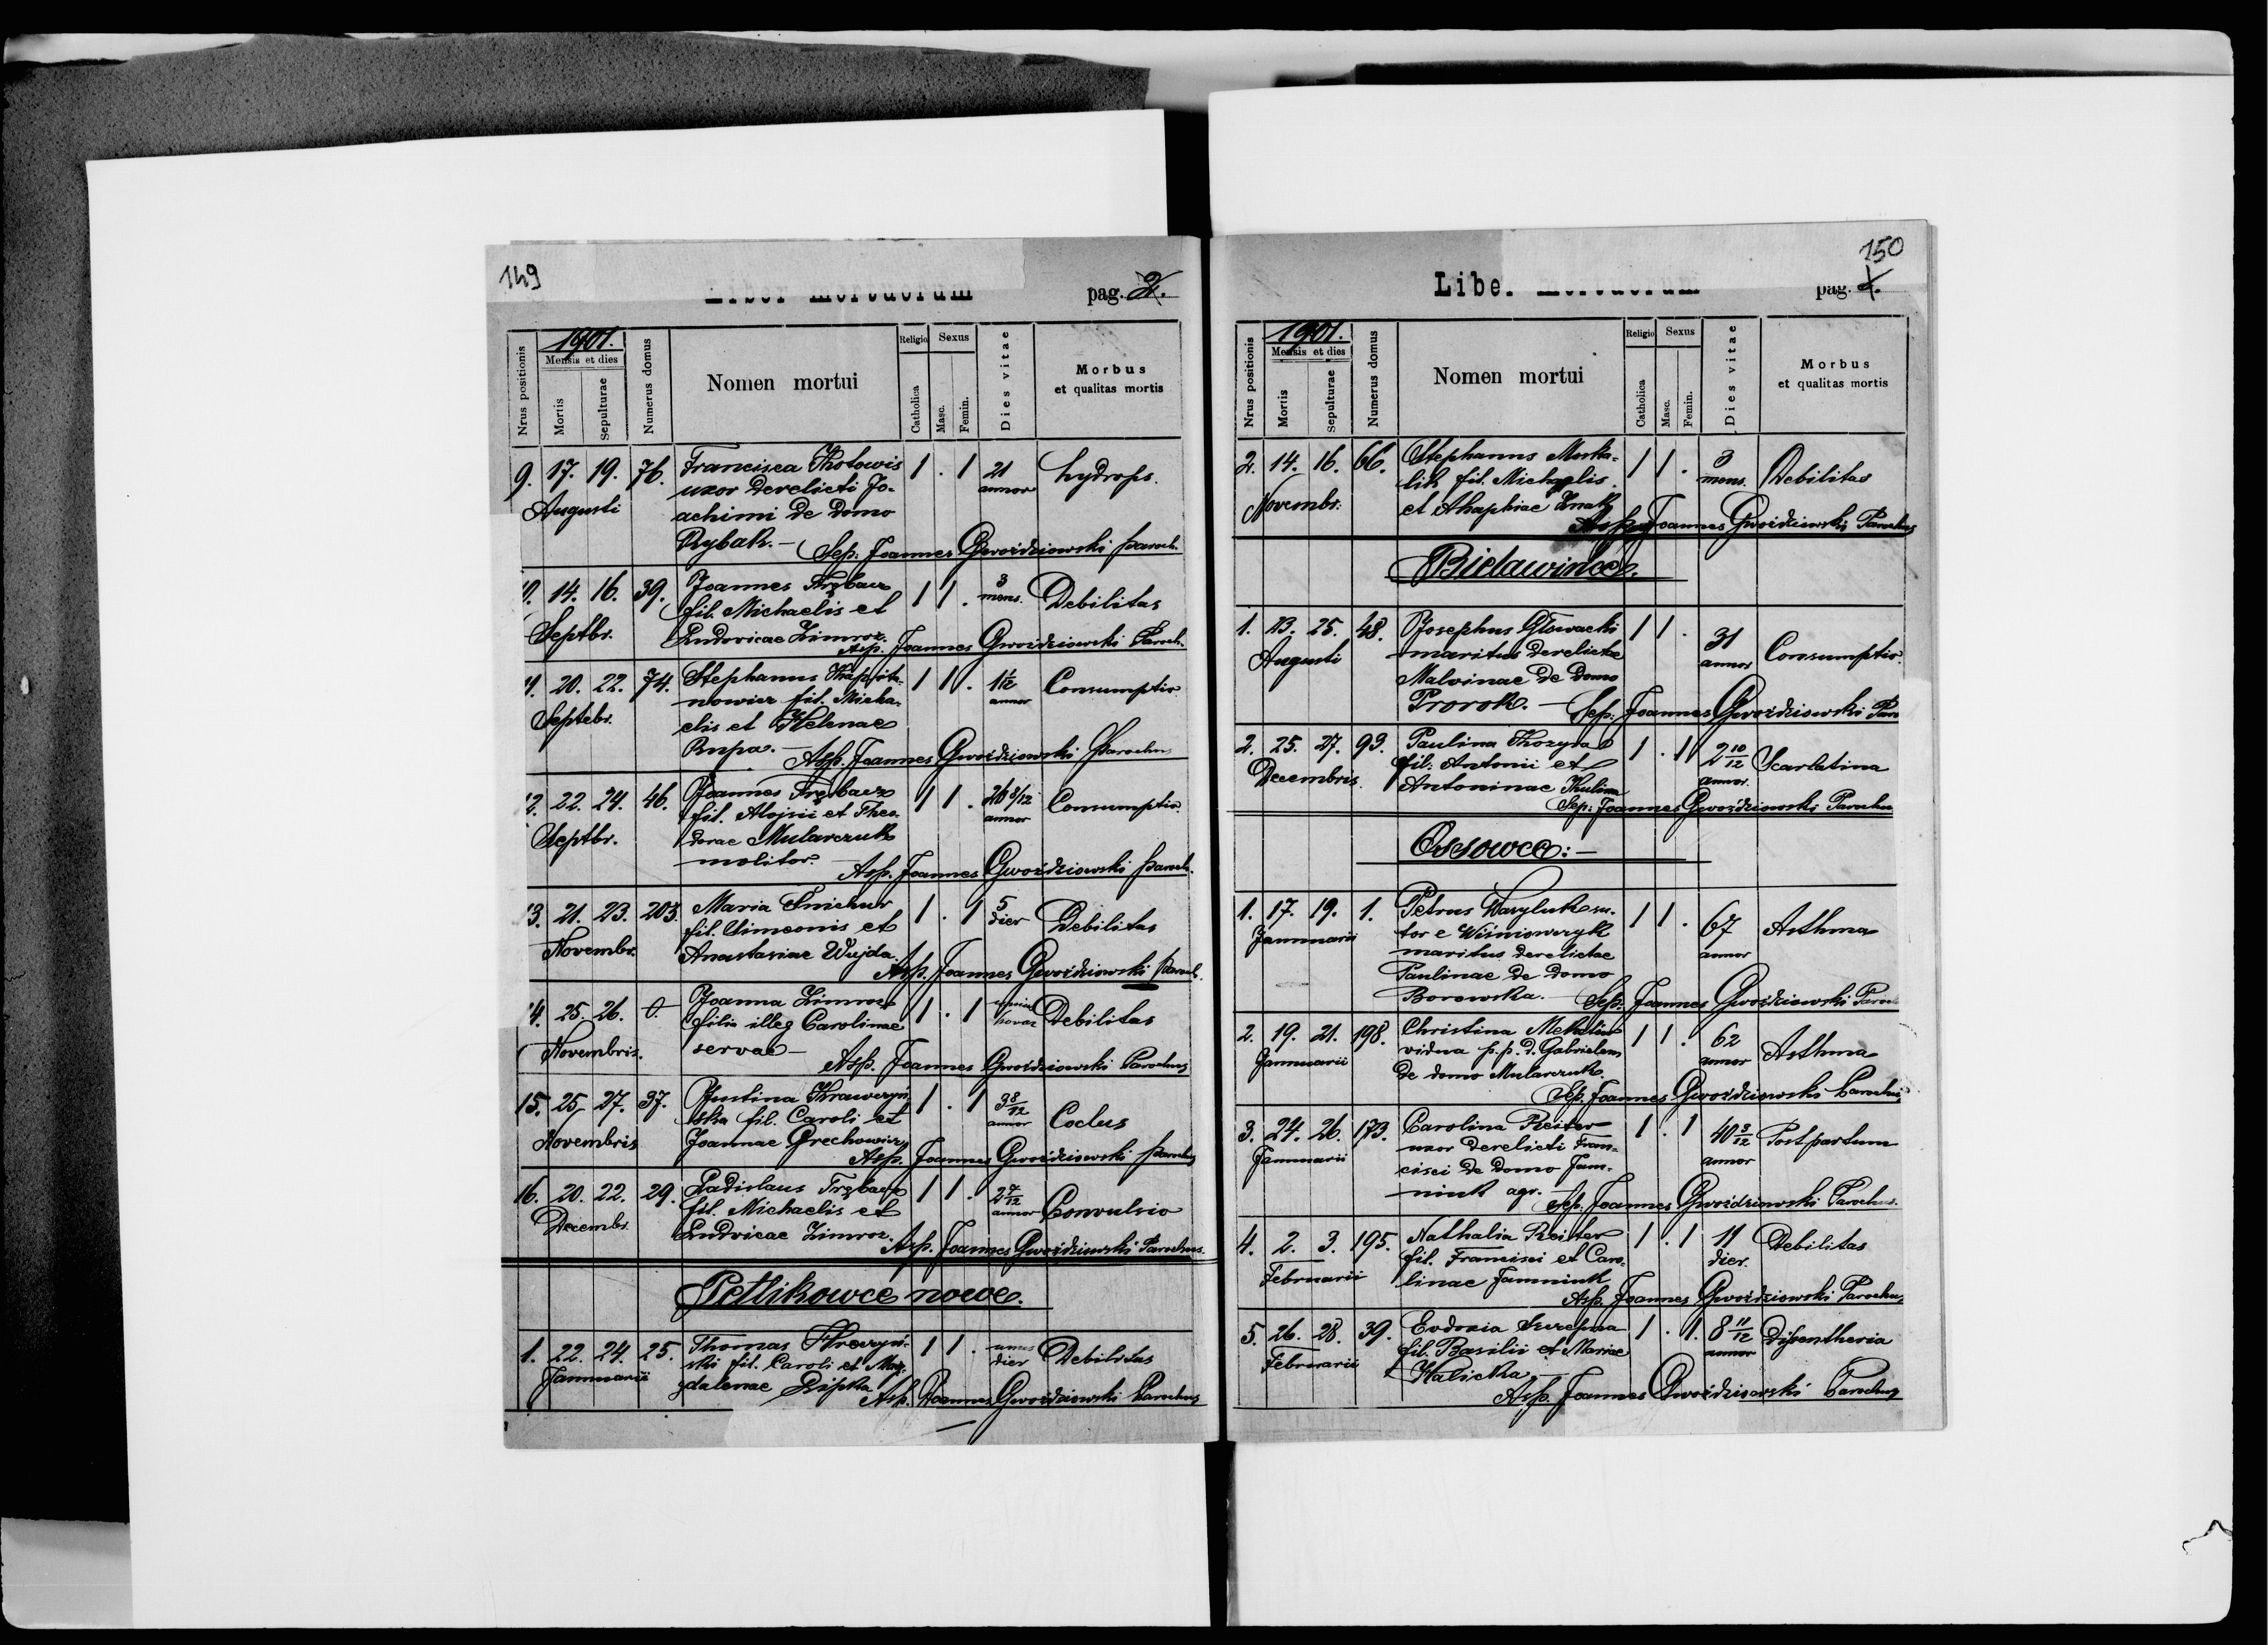 149
Liber mortuorum
pag. 2.
Nrus positionis
1901.
Mensis et dies
Mortis
Sepulturae
Numerus domus
Nomen mortui
Religio
Catholica
Sexus
Masc.
Femin.
Dies vitae
Morbus
et qualitas mortis
9. 17. 19. 76. Francisca 1 . 1 21 hydrops.
Augusti uxor derelicti Jo- annor
achimi de domo
Rybak. — Sep. Joannes Gwoździowski paroch.
14. 16. 39. Joannes Trębacz 1 1 . 3 Debilitas
Septbr. fil. Michaelis et mens.
Ludovicae Zimroz. Asp. Joannes Gwoździowski Paroch.
20. 22. 74. Stephanus 1 1 . 1 1/12 Consumptio
Septebr. nowicz fil. Micha- annor
elis et Helenae
Rupa. — Asp. Joannes Gwoździowski Parochus
22. 24. 46. Joannes Trębacz 1 1 . 26 8/12 Consumptio
Septbr. fil. Alojsii et Theo- annor
dorae Mularczuk
molitor. — Asp. Joannes Gwoździowski paroch.
21. 23. 203. Maria 1 . 1 5 Debilitas
Novembr. fil. Simeonis et dier
Anastasiae Wujda. Asp. Joannes Gwoździowski Paroch.
25. 26. 0. Joanna Zimroz 1 . 1 Debilitas
Novembris. filia illeg Carolinae
servae — Asp. Joannes Gwoździowski Parochus
15. 25. 27. 37. Justina Krawczyń- 1 . 1 3 8/12
Novembris ska fil. Caroli et annor
Joannae Grechowicz Asp. Joannes Gwoździowski Parochus
16. 20. 22. 29. Ladislaus Trębacz 1 1 . 2 4/12 Convulsio
Decembr. fil. Michaelis et annor
Ludvicae Zimroz. Asp. Joannes Gwoździowski Parochus.
Petlikowce nowe.
1. 22. 24. 25. Thomas 1 1 . unus Debilitas
Januarii ski fil. Caroli et Mag- dier
dalenae Lipka Asp. Joannes Gwoździowski Parochus
150
Liber mortuorum
pag.
Nrus positionis
1901.
Mensis et dies
Mortis
Sepulturae
Numerus domus
Nomen mortui
Religio
Catholica
Sexus
Masc.
Femin.
Dies vitae
Morbus
et qualitas mortis
2. 14. 16. 66. Stephanus 1 1 . 3 Debilitas
Novembr. fil. Michaelis mens.
et Ahaphiae Joannes Gwoździowski Parochus
Bielawince.
1. 23. 25. 48. Josephus Głowacki 1 1 . 31 Consumptio.
Augusti maritus derelictae annor
Malvinae de domo
Prorok. — Sep: Joannes Gwoździowski Par
2. 25. 27. 93. Paulina Kozyra 1 . 1 2 10/12 Scarlatina
Decembris fil: Antonii et annor.
Antoninae Kulina
Sep: Joannes Gwoździowski Parochu
Ossowce: —
1. 17. 19. 1. Petrus Wasyluk su- 1 1 . 67 Asthma
Jannuarii tor e Wiśniowczyk annor
maritus derelictae
Paulinae de domo
Borowska. — Sep. Joannes Gwoździowski Paroch
2. 19. 21. 198. Christina 1 1 . 62 Asthma
Jannuarii vidua p. p. d. Gabrielem annor
de domo Mularczuk.
Sep. Joannes Gwoździowski Parochus
3. 24. 26. 173. Carolina Reiter 1 . 1 40 3/12 Post partum
Jannuarii uxor derelicti Fran- annor
cisci de domo Jam-
niuk agr. — Sep. Joannes Gwoździowski Parochus.
4. 2. 3. 195. Nathalia Reiter 1 . 1 11 Debilitas
Februarii fil. Francisci et Caro- dier.
linae Jamniuk
Asp. Joannes Gwoździowski Parochus
5. 26. 28. 39. Eudoxia 1 . 1. 8 11/12 Disentheria
Februarii fil. Basilii et Mariae annor
Halicka —
Asp. Joannes Gwoździowski Parochus